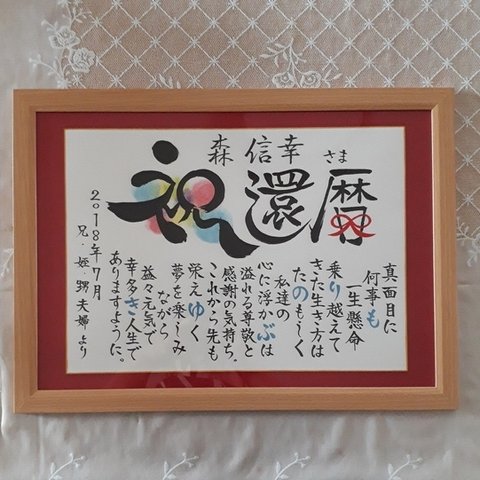 森 信幸 さま
祝還暦
真面目に
何事も
一生懸命
乗り越えて
きた生き方は
たのもしく
私達の
心に浮かぶは
溢れる尊敬と
感謝の気持ち。
これから先も
栄えゆく
夢を楽しみ
ながら
益々元気で
幸多き人生で
ありますように。
2018年7月
兄・姪・甥夫婦より